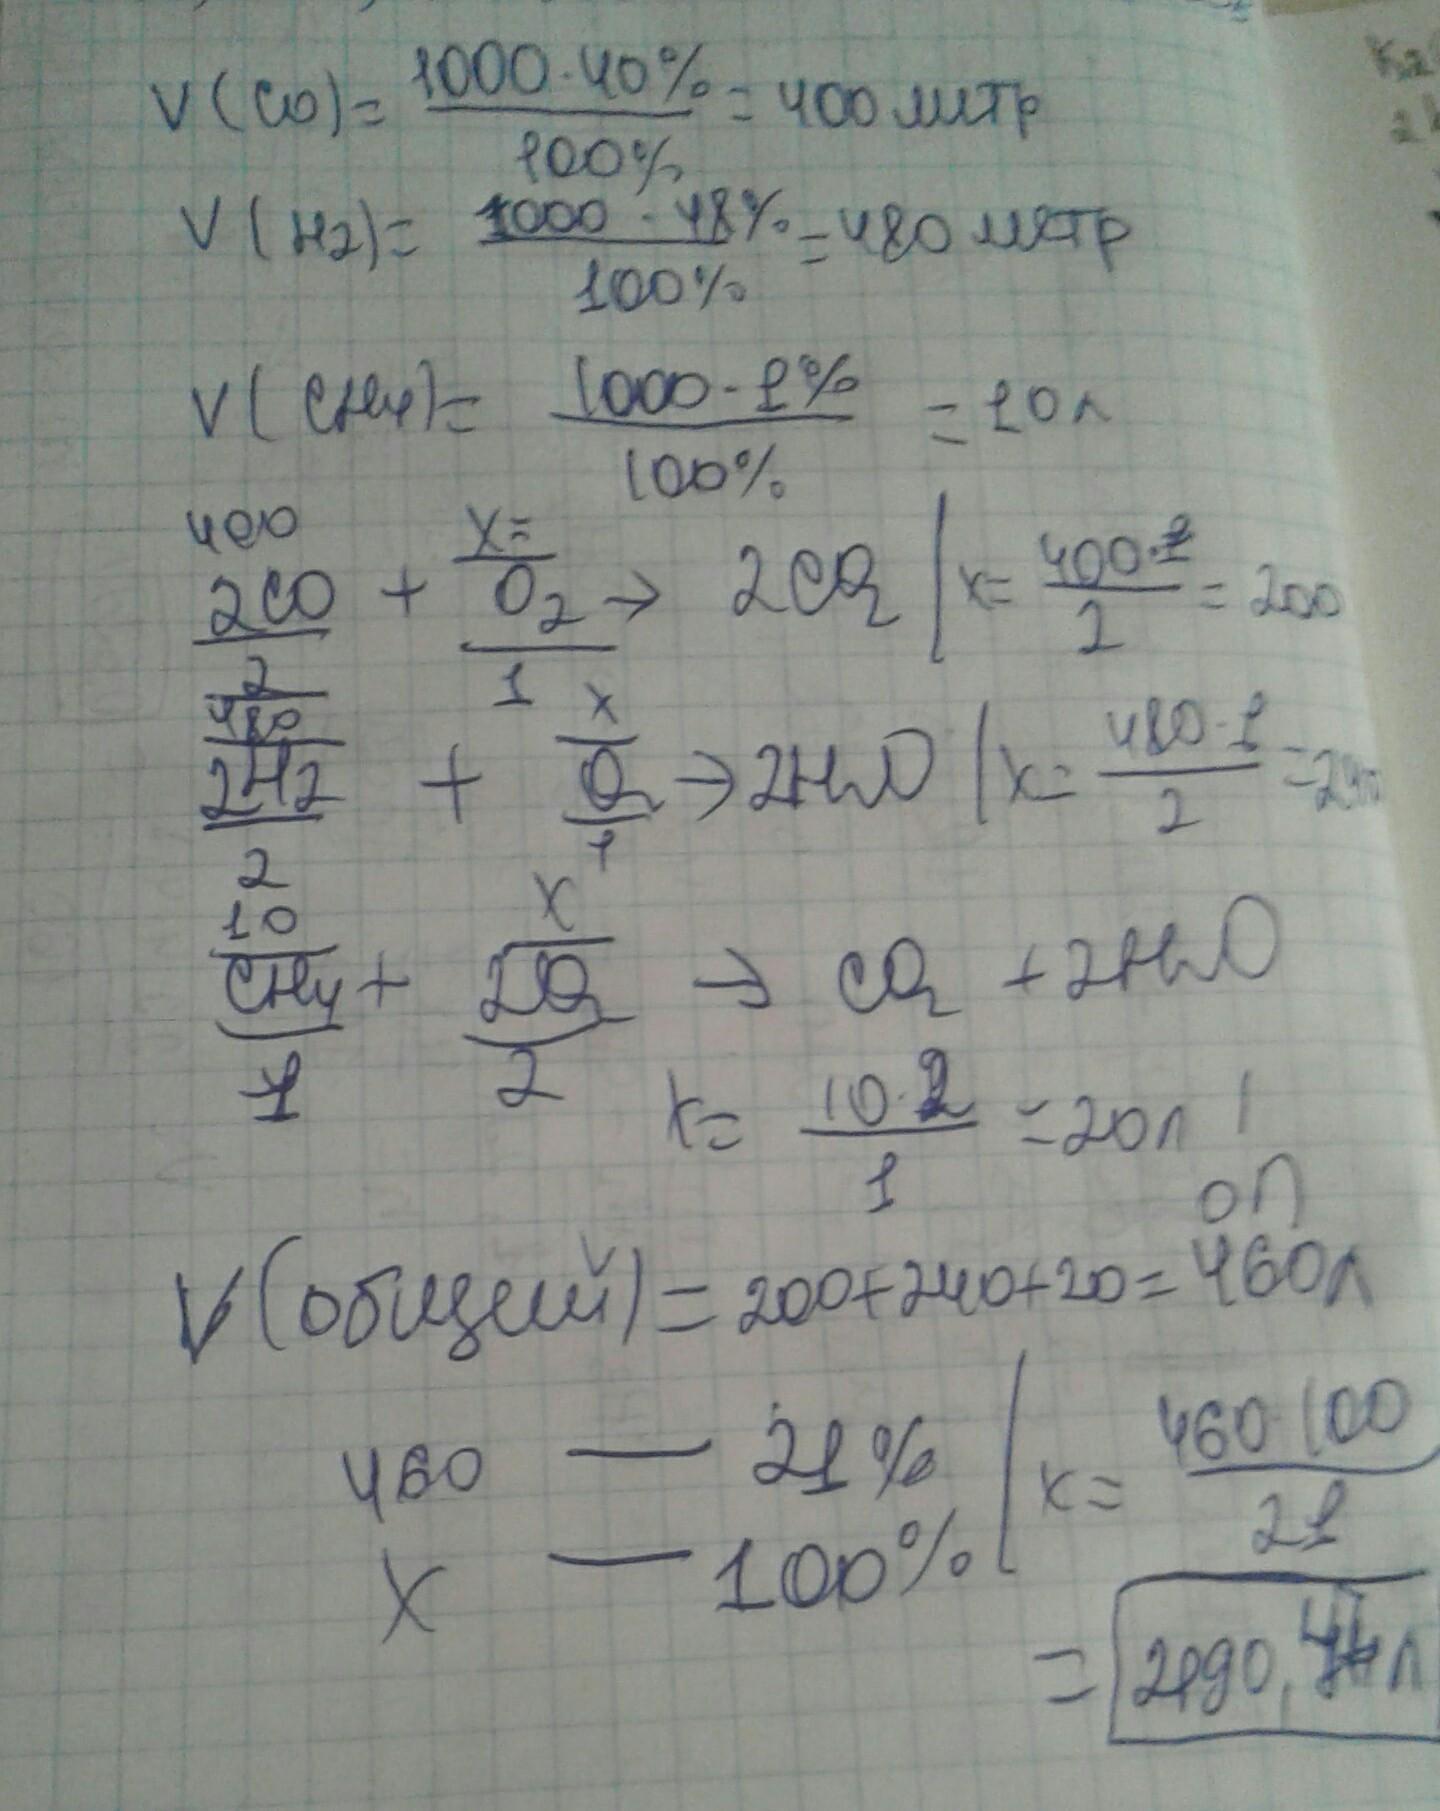 V(CO) = 1000·40% / 100% = 400 литр
V(H2) = 1000·48% / 100% = 480 литр
V(CH4) = 1000·1% / 100% = 10л
400 x=
2CO + O2 → 2CO2 | x= 400·1 / 2 = 200
2 1
480 x
2H2 + O2 → 2H2O | x= 480·1 / 2 = 240
2 1
10 x
CH4 + 2O2 → CO2 + 2H2O
1 2
x= 10·2 / 1 = 20л
ол
V(общий) = 200+240+20= 460л
460 — 21% | x= 460·100 / 21
x — 100%
= 2190,44л